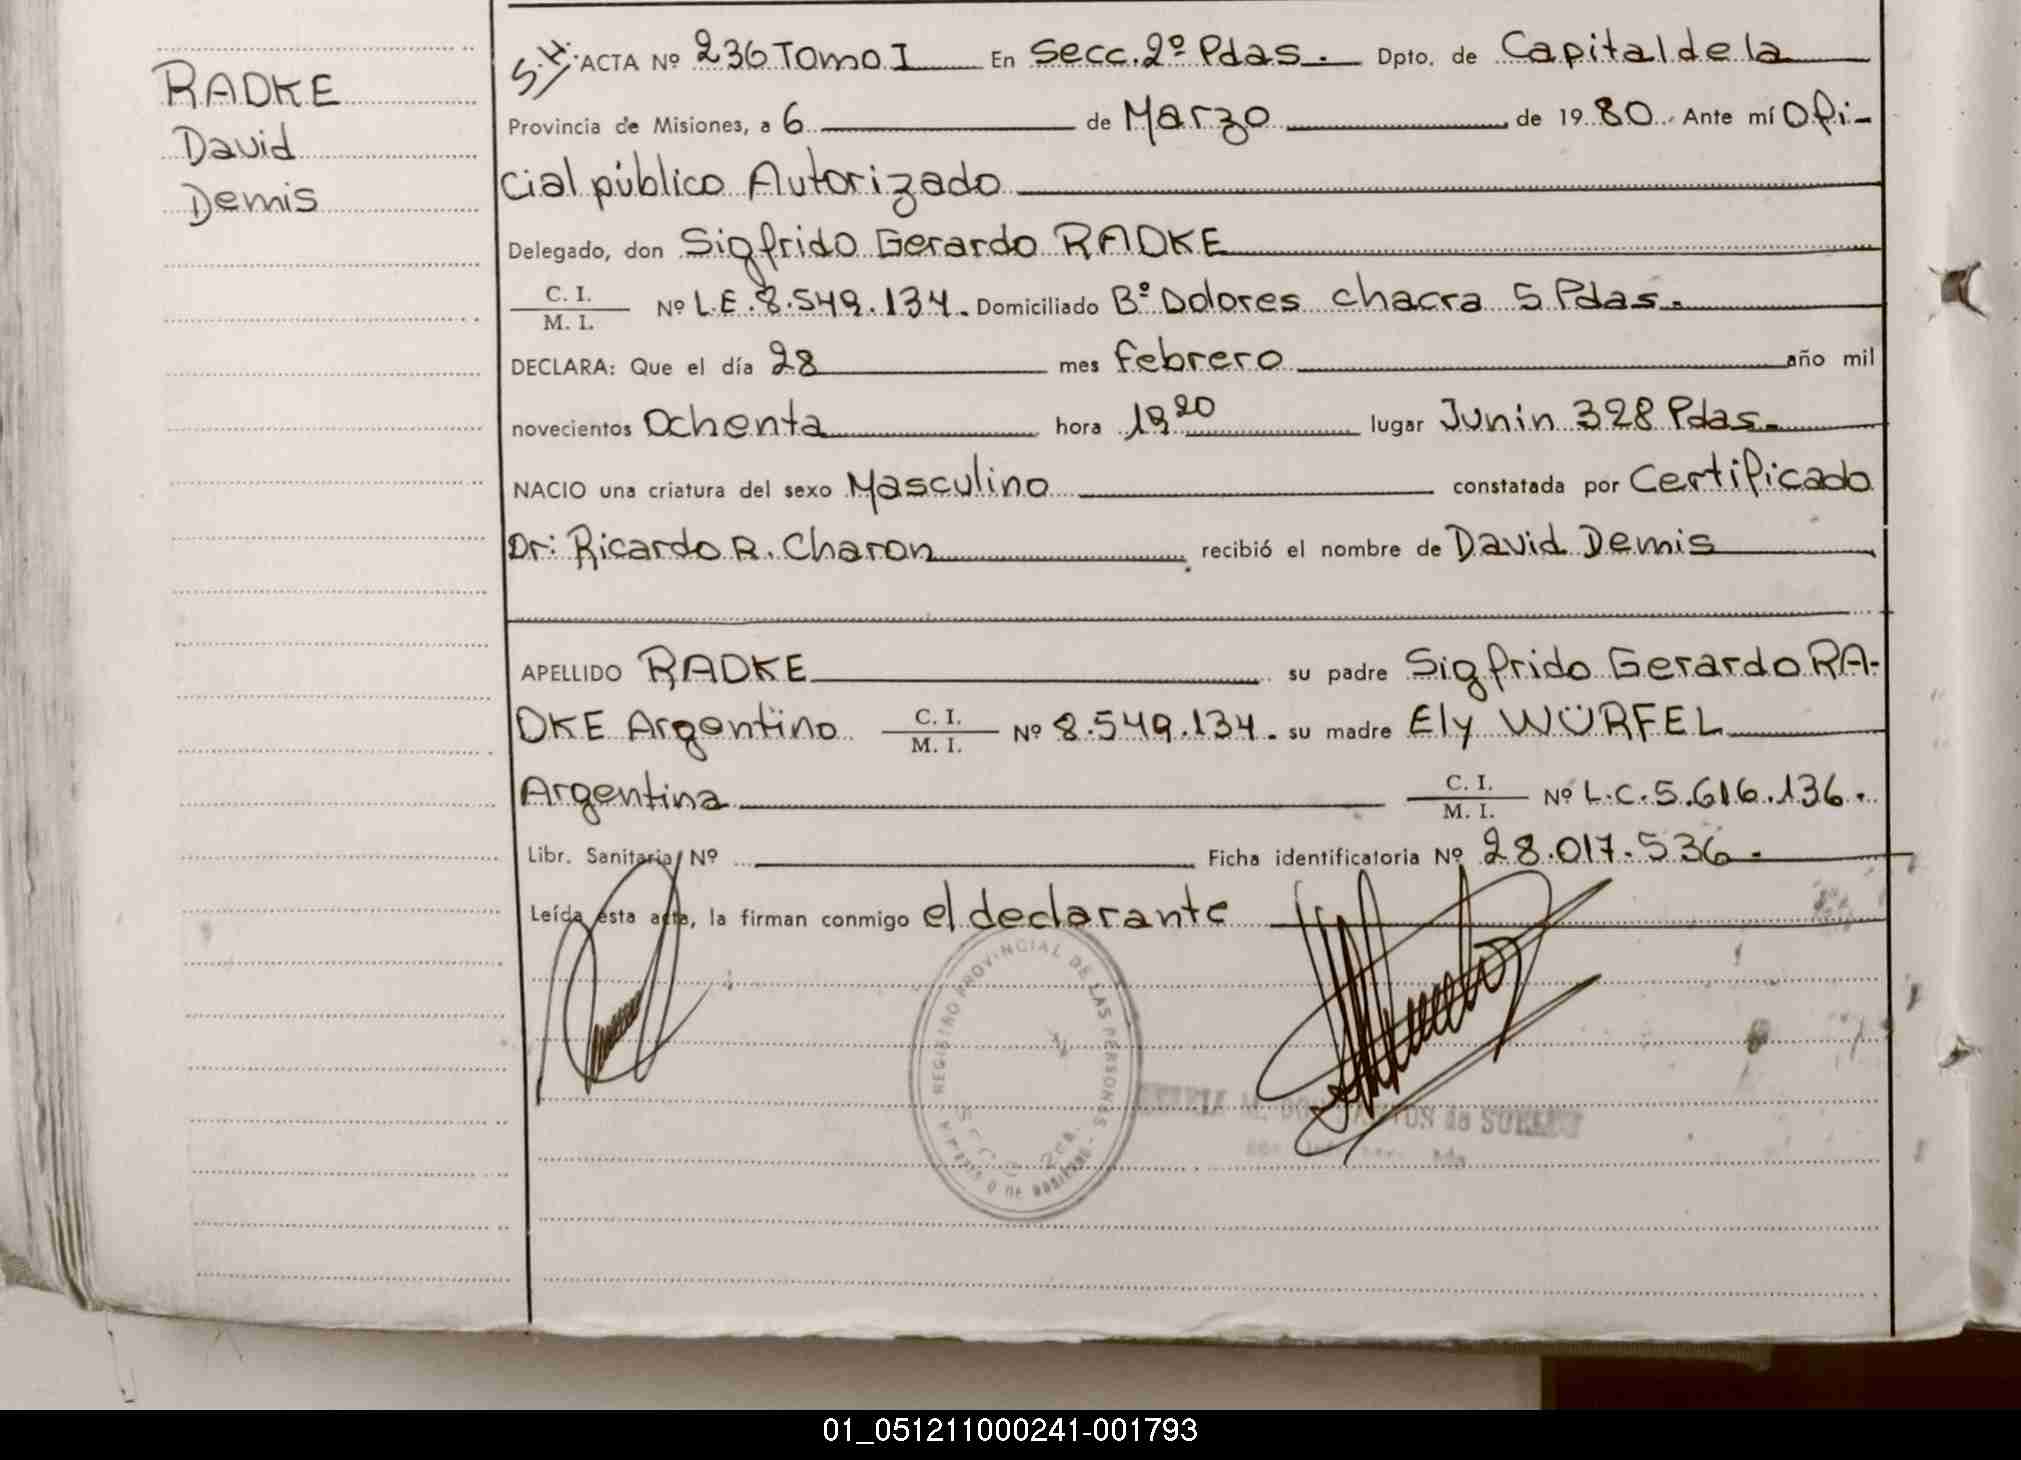 RADKE
David
Demis
S.H. ACTA Nº 236 Tomo I En Secc. 2º Pdas. Dpto. de Capital de la
Provincia de Misiones, a 6 de Marzo de 1980. Ante mí Ofi-
cial público Autorizado
Delegado, don Sigfrido Gerardo RADKE
C. I.
M. I.
Nº L.E. 8.549.134. Domiciliado Bº Dolores chacra 5 Pdas.
DECLARA: Que el día 28 mes febrero año mil
novecientos Ochenta hora 19 20 lugar Junin 328 Pdas.
NACIO una criatura del sexo Masculino constatada por Certificado
Dr: Ricardo R. Charon recibió el nombre de David Demis
APELLIDO RADKE su padre Sigfrido Gerardo RA-
DKE Argentino C. I. M. I. Nº 8.549.134. su madre Ely WÜRFEL
Argentina C. I. M. I. Nº L.C. 5.616.136.
Libr. Sanitaria Nº Ficha identificatoria Nº 28.017.536.
Leída ésta acta, la firman conmigo el declarante
REGISTRO PROVINCIAL DE LAS PERSONAS
M. de
01_051211000241-001793